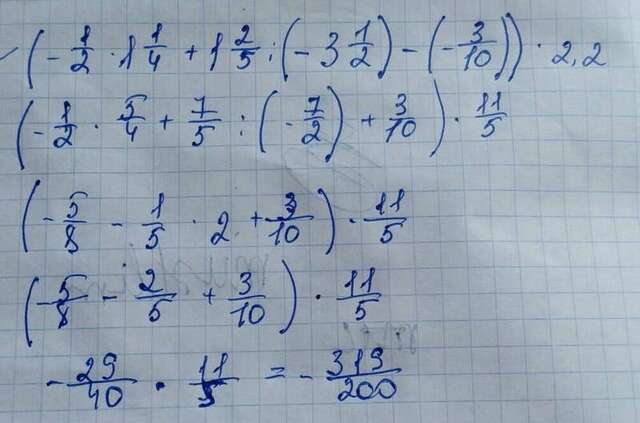 (-1/2 · 1 1/4 + 1 2/5 : (-3 1/2) - (-3/10)) · 2,2
(-1/2 · 5/4 + 7/5 : (-7/2) + 3/10) · 11/5
(-5/8 - 1/5 · 2 + 3/10) · 11/5
(-5/8 - 2/5 + 3/10) · 11/5
-29/40 · 11/5 = -319/200